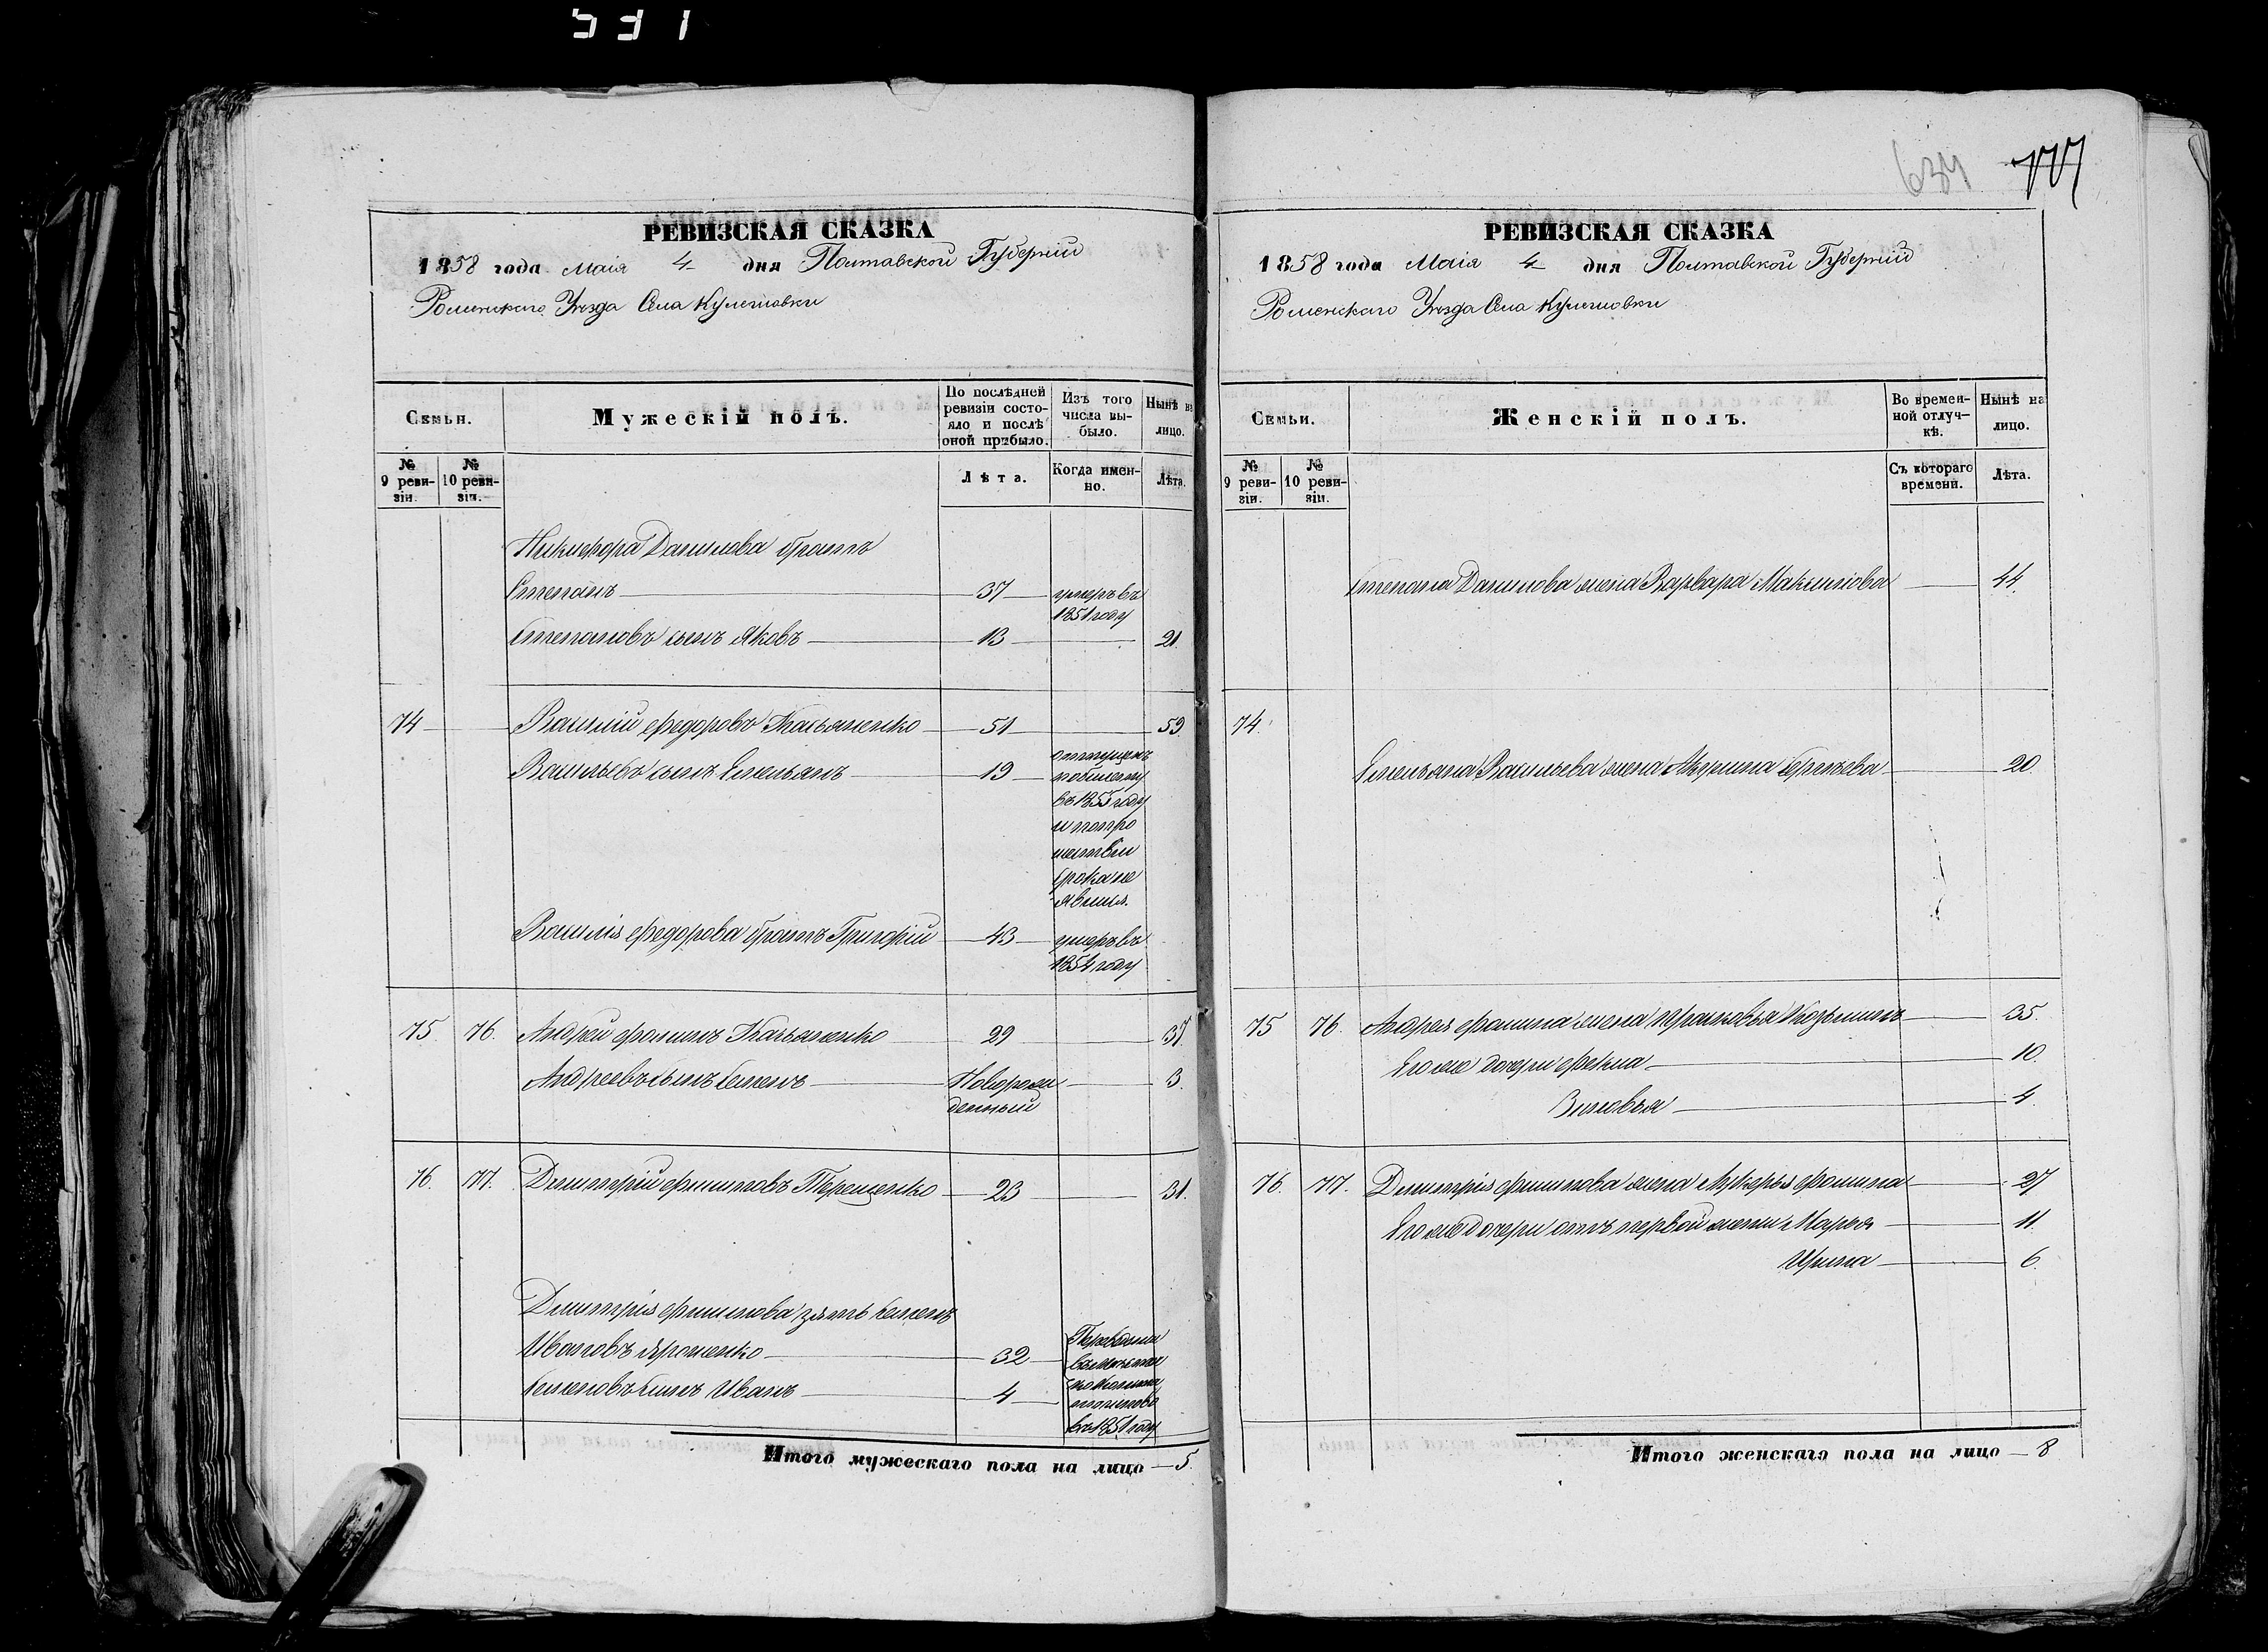 531
634 777
РЕВИЗСКАЯ СКАЗКА
1858 года Маія 4 дня Полтавской Губерніи
Роменскаго Уезда Села Кулешовки
Семьи.
Мужескій полъ.
По послѣдней ревизіи состояло и послѣ оной прибыло.
Изъ того числа выбыло.
Нынѣ на лицо.
№ 9 ревизіи.
№ 10 ревизіи.
Лѣта.
Когда именно.
Лѣта.
Никифора Данилова братъ
Степанъ 37 умеръ въ
1851 году
Степановъ сынъ Яковъ 13 21.
74 Василій Федоровъ Касьяненко 51 59.
Васильевъ сынъ Емельянъ 19 отпущенъ
по билету
въ 1855 году
и по про
шествіи
срока не
явился.
Василія Федорова братъ Григорій 43 умеръ въ
1854 году
75. 76. Андрей Фоминъ Касьяненко 29 37.
Андреевъ сынъ Семенъ Новорож 3.
денный
76. 77. Дмитрій Филиповъ Терещенко 23 31.
Дмитрія Филипова зять Семенъ
Ивановъ Ярошенко 32
Семеновъ сынъ Иванъ 4
въ 1851 году
Итого мужескаго пола на лицо 5.
РЕВИЗСКАЯ СКАЗКА
1858 года Маія 4 дня Полтавской Губерніи
Роменскаго Уезда Села Кулешовки
Семьи.
Женскій полъ.
Во временной отлучкѣ.
Нынѣ на лицо.
№ 9 ревизіи.
№ 10 ревизіи.
Съ котораго времени.
Лѣта.
Степана Данилова жена Варвара Максимова 44.
74.
Емельяна Васильева жена 20.
75 76. Андрея Фомина жена Прасковья 35.
Его же дочери Фекла 10.
Зиновья 4.
76. 77. Дмитрія Филипова жена Лукерья Фомина 27
Его же дочери отъ первой жены Марья 11.
Ирина 6.
Итого женскаго пола на лицо 8